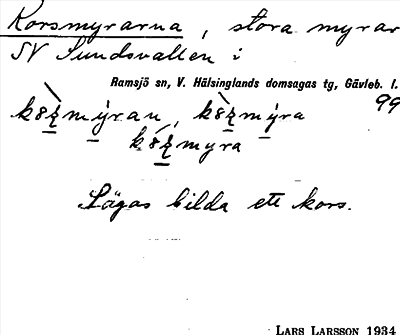 Korsmyrarna, stora myrar
SV Sundsvallen i
Ramsjö sn, V. Hälsinglands domsagas tg, Gävleb. l.
99
Sägas bilda ett kors.
LARS LARSSON 1934